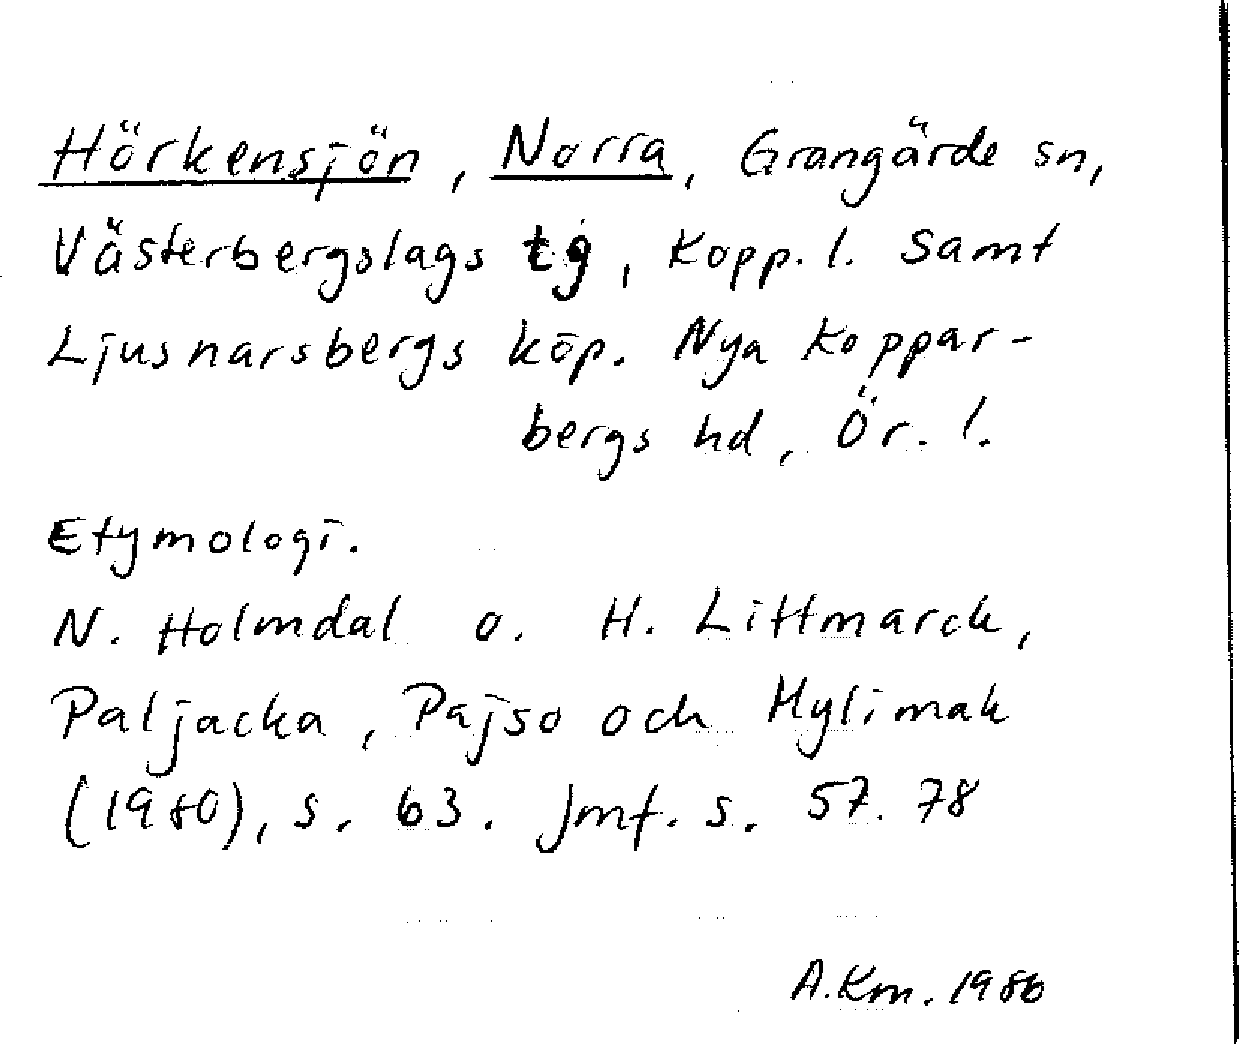 Hörkensjön, Norra, Grangärde sn,
Västerbergslags tg, Kopp. l. samt
Ljusnarsbergs köp. Nya Koppar-
bergs hd, Ör. l.
Etymologi.
N. Holmdal o. H. Littmarck,
Paljacka, Pajso och Hylimak
(1980), s. 63. Jmf. s. 57. 78
A.Km. 1986